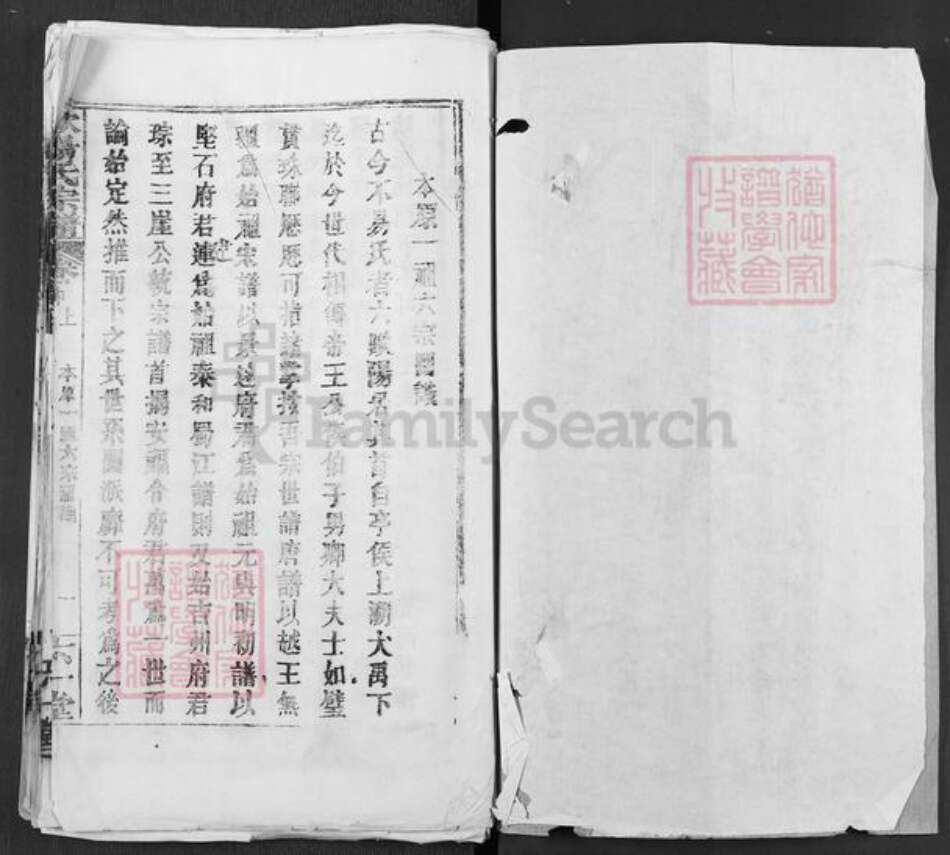 本源一祖六宗圖識
古今不易氏者六歐陽居其首自亭侯上溯大禹下
迄於今世代相傳帝王及侯伯子男卿大夫士如璧
貫珠聯歷歷可指諸掌按吾宗世譜唐譜以越王無
疆爲始祖宋譜以景達府君爲始祖元與明初譜以
堅石府君建爲始祖泰和蜀江譜則又始吉州府君
琮至三崖公統宗譜首揭安福令府君萬爲一世而
論始定然推而下之其世系圖派靡不可考爲之後
氏宗譜
上
本原一祖六宗圖
一
六一堂
譜學會
收藏
FamilySearch